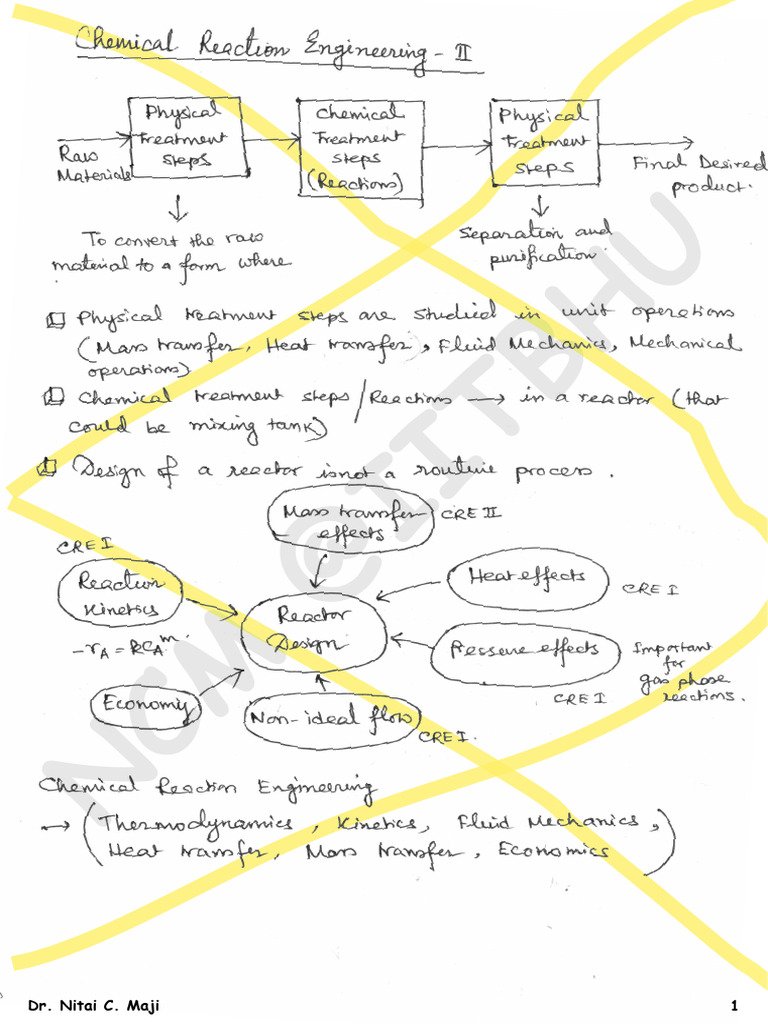 Chemical Reaction Engineering - II
Physical Treatment steps
Chemical Treatment steps (Reactions)
Physical Treatment steps
Raw Materials
Final Desired product.
To convert the raw
material to a form where
Separation and
purification.
1 Physical treatment steps are studied in unit operations
(Mass transfer, Heat transfer, Fluid Mechanics, Mechanical
operations)
1 Chemical treatment steps/Reactions → in a reactor (that
could be mixing tank)
1 Design of a reactor is not a routine process.
Mass transfer
effects
CRE II
CRE I
Reaction
Kinetics
-rA = kCA^m.
Heat effects
CRE I
Reactor
Design
Pressure effects
CRE I
Important
for
gas phase
reactions.
Economy
Non-ideal flow
CRE I.
Chemical Reaction Engineering
→ (Thermodynamics, Kinetics, Fluid Mechanics,
Heat transfer, Mass transfer, Economics)
NCM@IITBHU
Dr. Nitai C. Maji 1